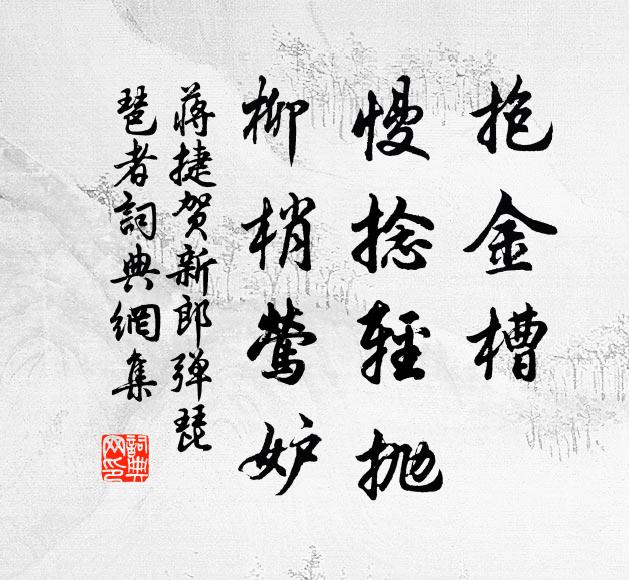 抱金槽
慢捻輕抛
柳梢莺妒
蒋捷贺新郎弹琵
琶者詞典網集
詞典
网印